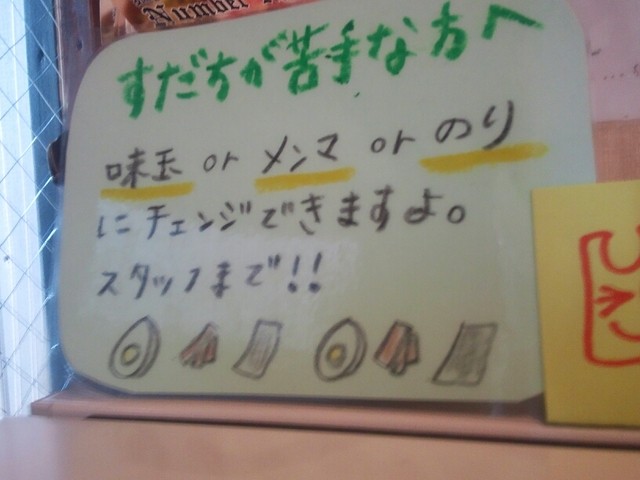 Number
すだちが苦手な方へ
味玉 or メンマ or のり
にチェンジできますよ。
スタッフまで!!